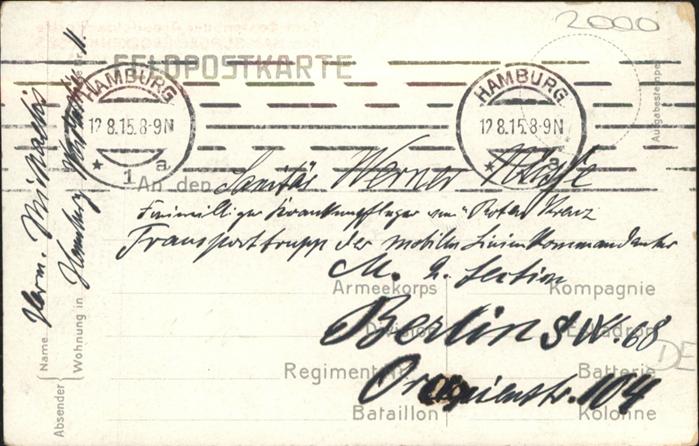 2000
FELDPOSTKARTE
HAMBURG
12.8.15.8-9N
* 1 a
HAMBURG
12.8.15.8-9N
* a
Ausgabestempel
An den Sanitäs Werner
Freiwilliger Krankenpfleger vom Roten Kreuz
Transporttrupp der mobilen Linienkommandantur
M. 2. Section
Armeekorps Kompagnie
Berlin SW. 68
Division Eskadron
Regiment Batterie
Oranienstr. 104
Bataillon Kolonne
DE
Absender
Name Herm. Michaelis
Wohnung in Hamburg 11.